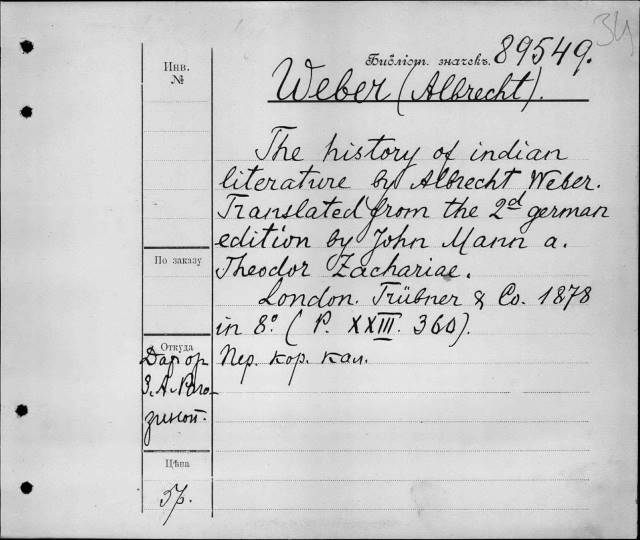 34
Инв.
№
Библіот. значекъ. 89549.
Weber (Albrecht).
The history of indian
literature by Albrecht Weber.
Translated from the 2d german
edition by John Mann a.
Theodor Zachariae.
London. Trübner & Co. 1878
in 8.° (P. XXIII. 360).
Пер. кор. кал.
По заказу
Откуда
Дар от
З. А. Раго-
зиной.
Цѣна
5р.